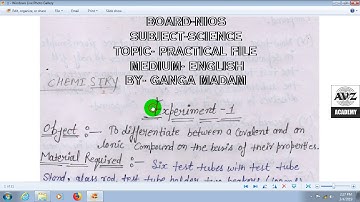 BOARD-NIOS
SUBJECT-SCIENCE
TOPIC- PRACTICAL FILE
MEDIUM- ENGLISH
BY- GANGA MADAM
CHEMISTRY
Experiment - 1
Object :- To differentiate between a covalent and an
Ionic Compound on the basis of their properties.
Material Required :- Six test tubes with test tube
Stand, glass rod, test tube holder, two beakers
AVZ
ACADEMY